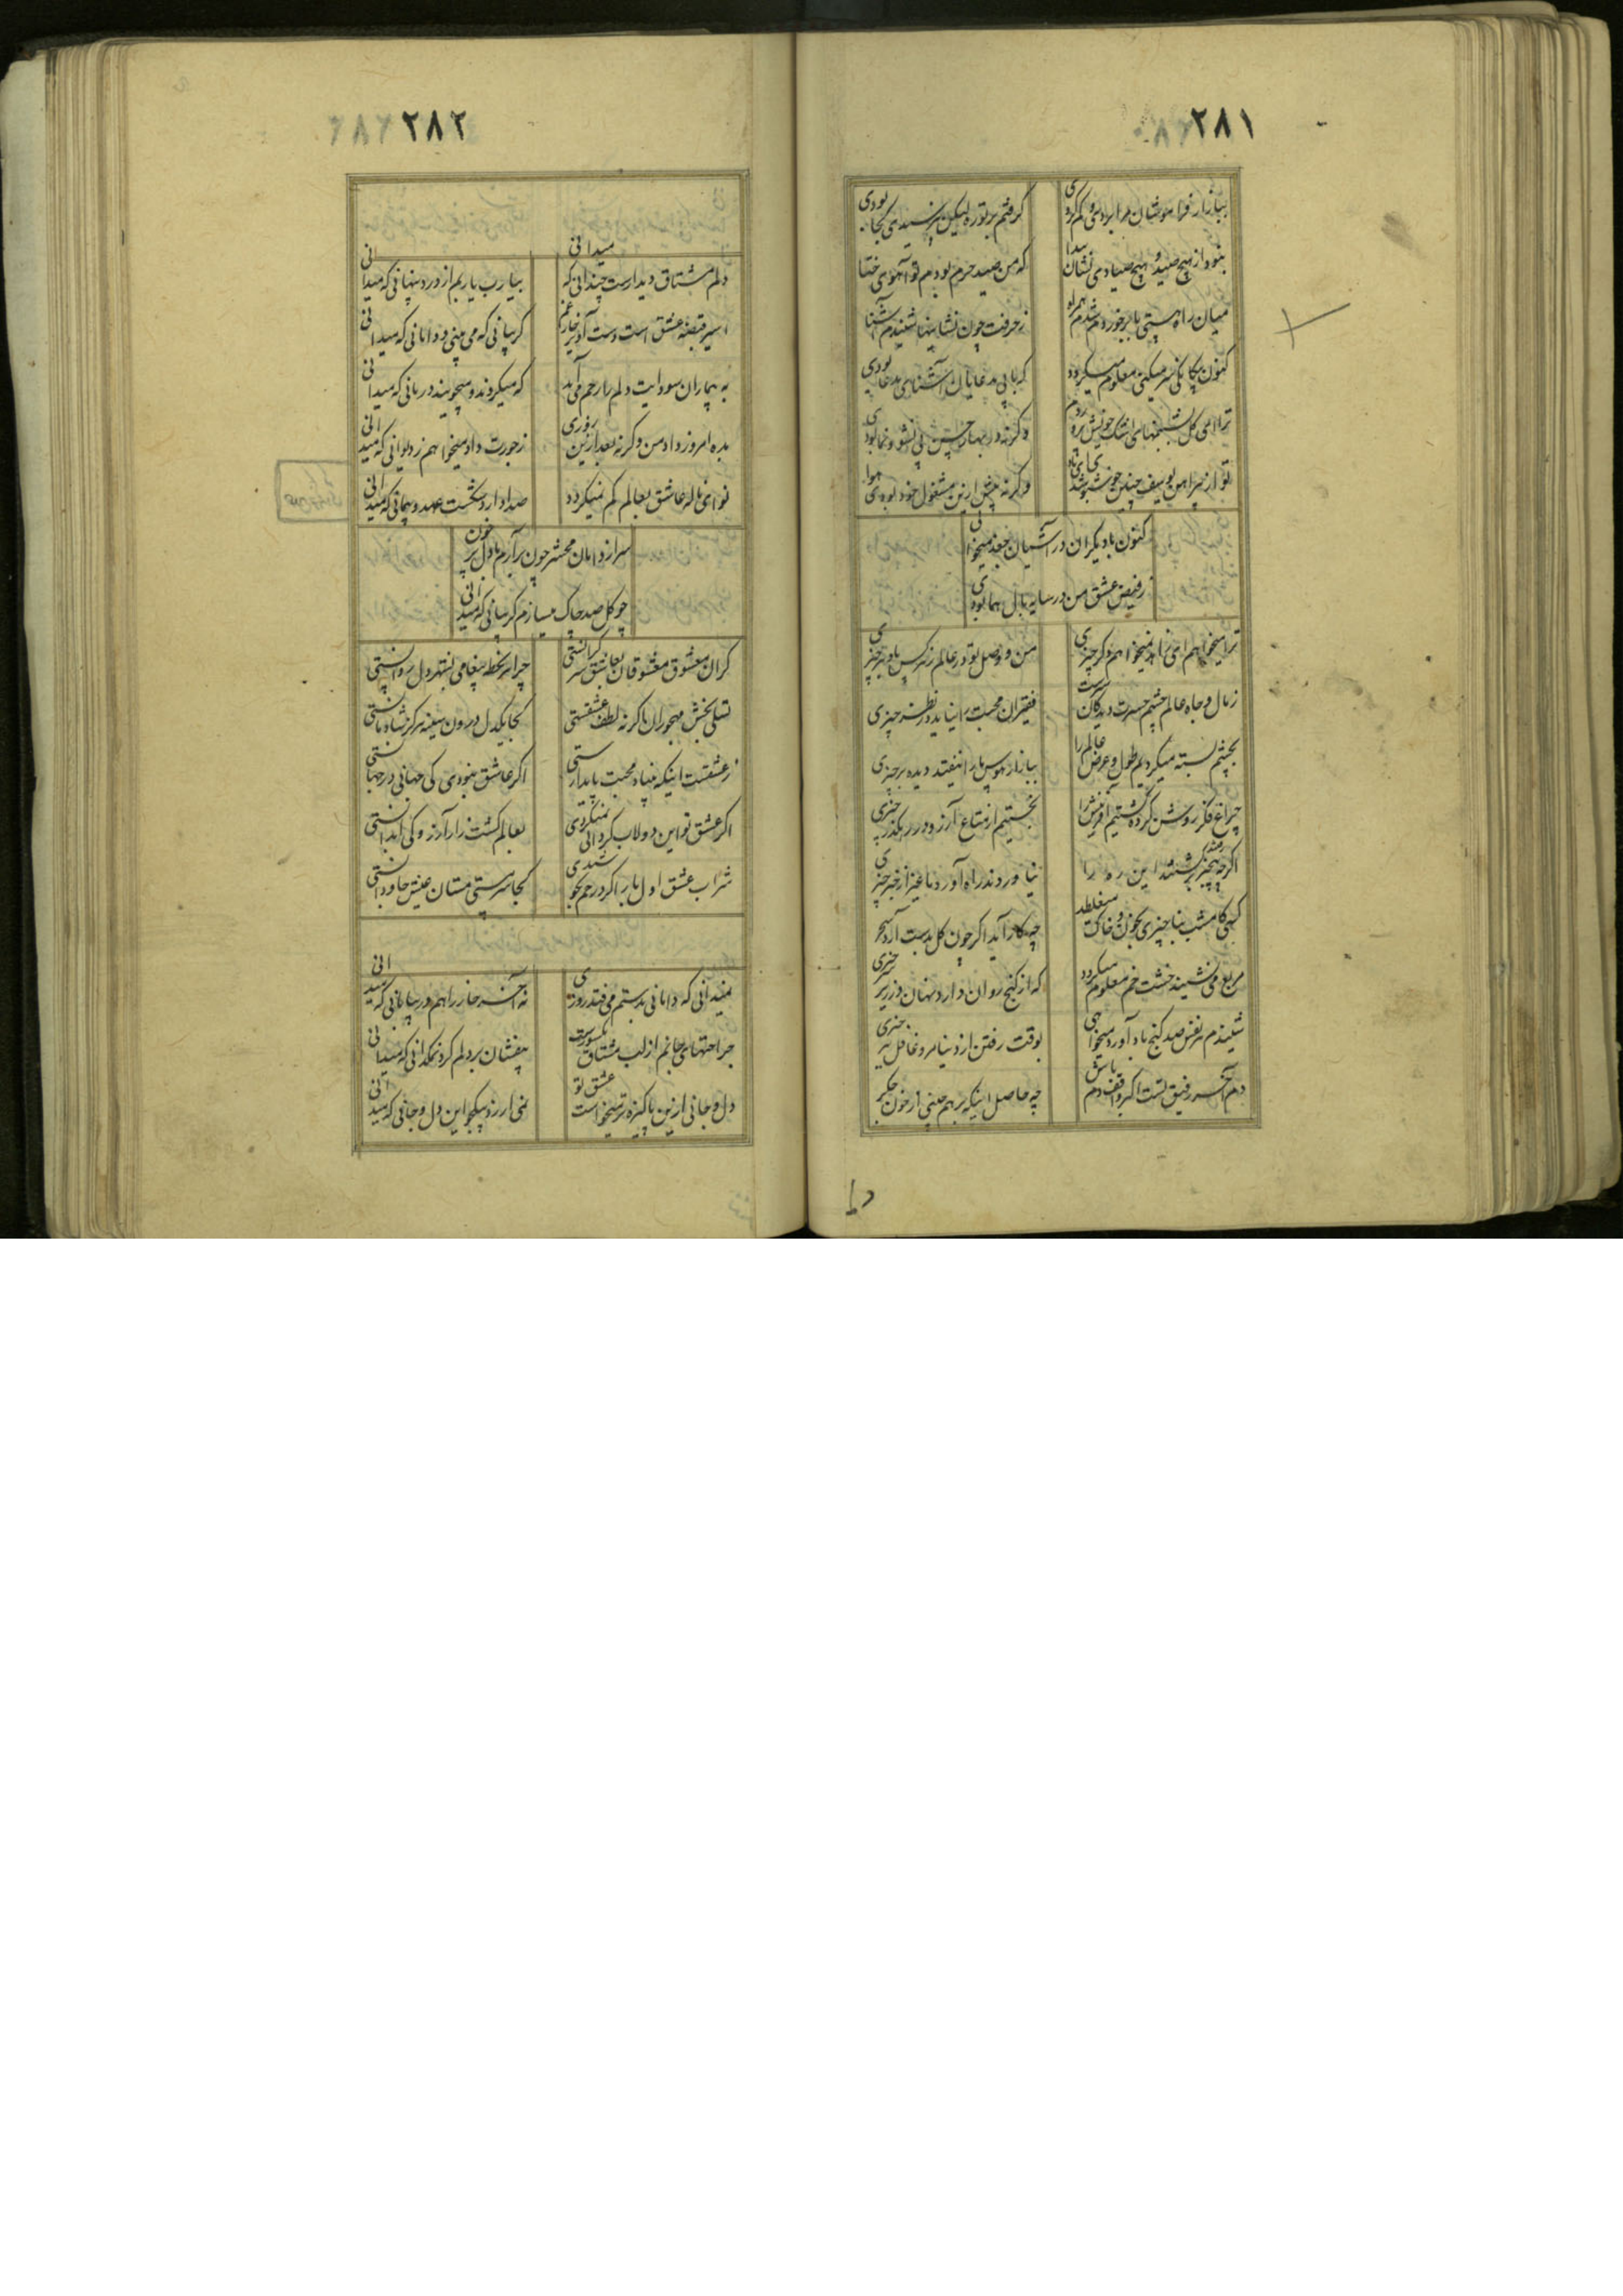 ۲۸۱
ببازار فراموشان مرا بردی و کم کردی
گرفتم پرتو ره لیکن نپرسیدی کجا بودی
نبود از هیچ صید و هیچ صیادی نشان پیدا
که من صید حرم بودم تو آهوی ختا بودی
میان راه هستی با برخوردم شدم همراه
ز حرفت چون نشانیها شنیدم آشنا بودی
کنون بیگانگی سر میکنی معلوم میگردد
ترا ای گل بشبنمهای اشک خویش پروردم
وگرنه در بهار حسن بی نشو و نما بودی
تو از پیراهن یوسف چنین خوشبو شدی ای باد
وگرنه پیش ازین مشغول خود بودی هوا بودی
کنون با دیگران در آشیان جغد میخوانی
ز فیض عشق من در سایه بال هما بودی
ترا میخواهم ای زاهد نمیخواهم دگر چیزی
من و وصل تو در عالم ز هر کس باد هر چیزی
ز مال و جاه عالم چشم حسرت دیدگان سیرست
فقیران محبت را نیاید در نظر چیزی
بچشم بسته میکردیم طول و عرض عالم را
ببازار هوس ما را نیفتد دیده بر چیزی
چراغ فکر روشن کرده گشتیم آفرینش را
نجستیم از متاع آرزو در رهگذر چیزی
اگرچه بیخبر رفتند این ره را
نیاوردند راه آورد ما غیر از خبر چیزی
کسی کامشب بنا چیزی بخون و خاک میغلطد
چه کار آید اگر چون گل بدست آرد سحر چیزی
مربع می نشیند خشت خم معلوم میگردد
که از گنج روان دارد نهان در زیر سر چیزی
شنیدم هر نفس صد گنج باد آورد میخواهی
بوقت رفتن از دنیا مرو غافل ببر چیزی
دم آخر رفیق تست اگر واقف دم باش
چه حاصل اینکه بر هم چینی از خون جگر
۲۸۲
دلم مشتاق دیدارست چندانی که میدانی
بیا رب یا بم از درد پنهانی که میدانی
اسیر قبضه عشق است دست آویز خار غم
گریبانی که می بینی و دامانی که میدانی
به بیماران سودایت دلم را رحم می آید
که میگردند و میجویند درمانی که میدانی
بده امروز داد من وگرنه بعد ازین روزی
ز جورت داد میخواهم ز دیوانی که میدانی
نوای ناله عاشق بعالم کم نمیگردد
صدا دارد شکست عهد و پیمانی که میدانی
سر از دامان محشر چون برآرم با دل پر خون
چو گل صد چاک میسازم گریبانی که میدانی
گران معشوق معشوقان بعاشق سر گرانستی
چرا هر لحظه پیغامی بشهر دل روانستی
تسلی بخش مهجوران ما گر نه لطف عشقستی
کجا یکدل درون سینه مرکز شادمانستی
ز عشقست اینکه بنیاد محبت پایدارستی
اگر عاشق نبودی کی جهانی در جهانستی
اگر عشق تو این دولاب گردانی نمیکردی
بعالم کشت زار آرزو کی آبدانستی
شراب عشق اول بار اگر در خم نجوشیدی
کجا سرمستی مستان عیش جاودانستی
نمیدانی که دامانی بدستم می فتد روزی
نه آخر خار راهم در بیابانی که میدانی
جراحتهای جانم از لب مشتاق یکسویست
بیفشان بر دلم گرد نمکدانی که میدانی
دل و جانی ازین پاکیزه تر میخواست عشق تو
نمی ارزد بیکجو این دل و جانی که میدانی